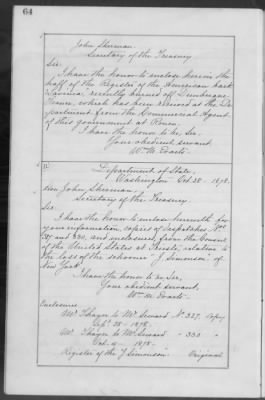 64
John Sherman.
Secretary of the Treasury
Sir.
I have the honor to enclose herein the
half of the Register of the American bark
"Lavinia" recently burned off Dunkirque
France, which has been received at the De-
partment from the Commercial Agent
of this government at Rouen.
I have the honor to be, Sir,
Your obedient servant
Wm M. Evarts.
Department of State,
Washington Oct. 28. 1878.
Hon John Sherman,
Secretary of the Treasury.
Sir.
I have the honor to enclose herewith for
your information, copies of Despatches Nos
327 and 330, and enclosures, from the Consul
of the United States at Trieste, relative to
the loss of the schooner "J. Simonson" of
New York.
I have the honor to be Sir,
Your obedient servant,
Wm M. Evarts.
Enclosures
Mr Thayer to Mr Seward No 327. Copy
Sept. 28 - 1878.
Mr Thayer to Mr Seward " 330 "
Oct. 9 - 1878.
Register of the "J. Simonson". Original